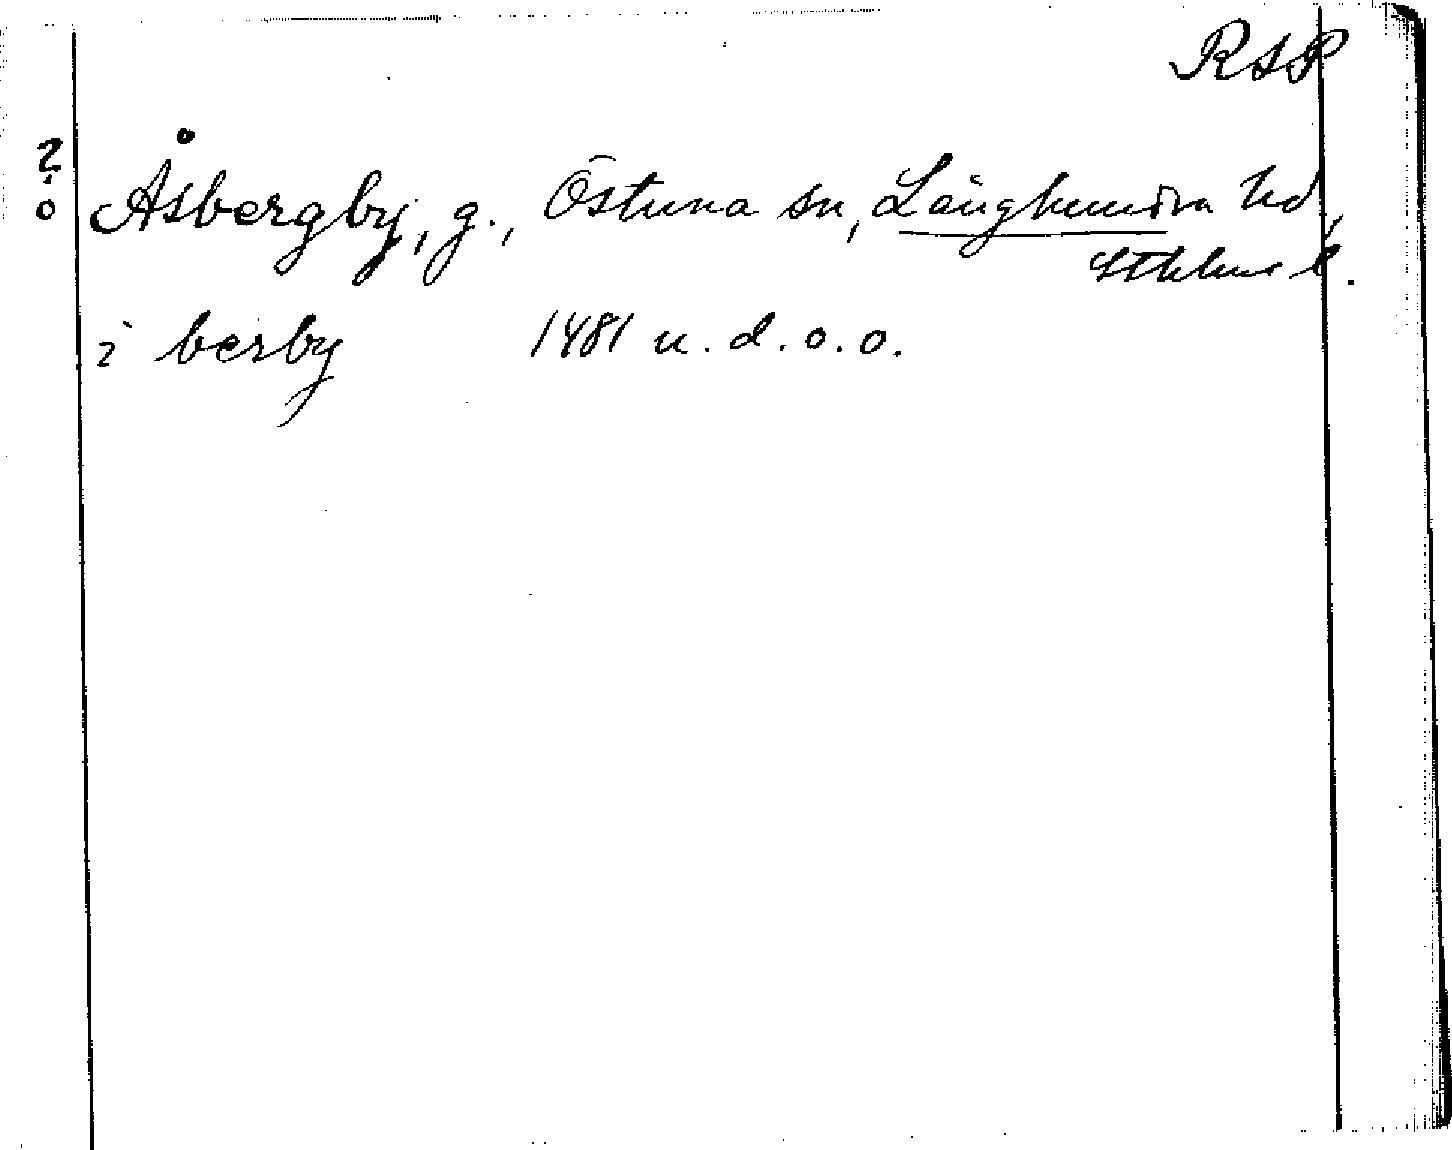 RSP
? Åsbergby, g., Östuna sn, Långhundra hd,
o
Sthlms l.
i berby 1481 u.d.o.o.